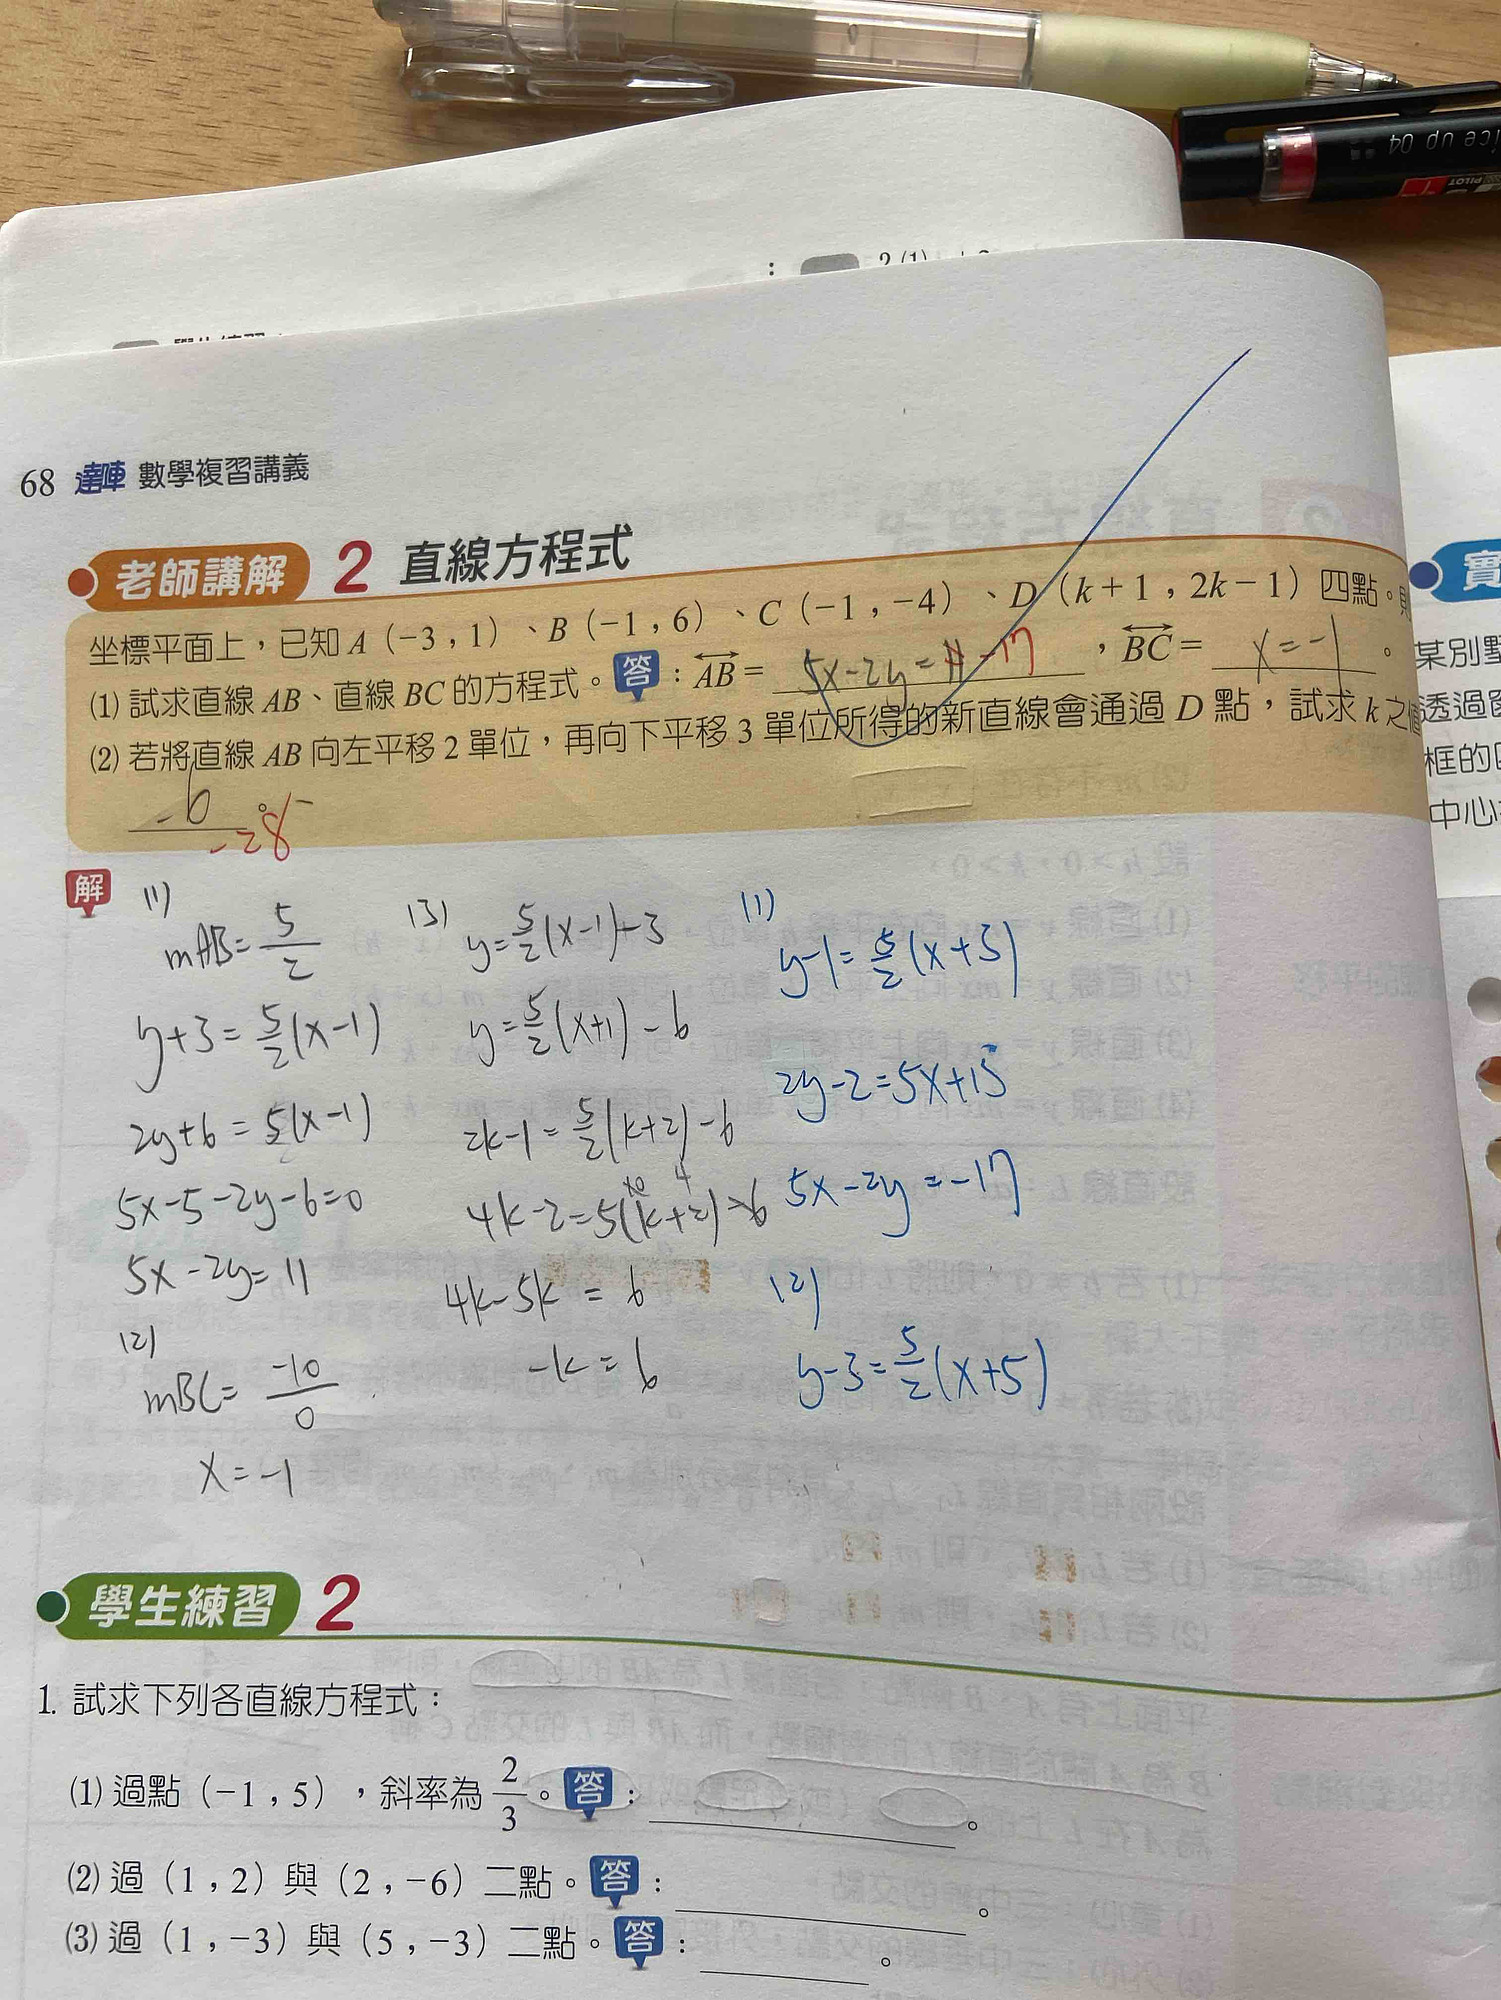 ice up 04
PILOT
68 達陣 數學複習講義
老師講解 2 直線方程式
坐標平面上，已知 A（-3，1）、B（-1，6）、C（-1，-4）、D（k+1，2k-1）四點。
(1) 試求直線 AB、直線 BC 的方程式。答：AB= 5x-2y= -17 ，BC= x=-1 。
(2) 若將直線 AB 向左平移 2 單位，再向下平移 3 單位所得的新直線會通過 D 點，試求 k 之值
-6 。
-28
解
(1)
mAB= 5/2
y+3= 5/2(x-1)
2y+6=5(x-1)
5x-5-2y-6=0
5x-2y=11
(2)
mBC= -10/0
x=-1
(3) y= 5/2(x-1)-3
y= 5/2(x+1)-6
2k-1= 5/2(k+2)-6
4k-5k = 6
-k=6
(1)
y-1= 5/2(x+3)
2y-2=5x+15
5x-2y=-17
(2)
y-3= 5/2(x+5)
學生練習 2
1. 試求下列各直線方程式：
(1) 過點（-1，5），斜率為 2/3。答： 。
(2) 過（1，2）與（2，-6）二點。答： 。
(3) 過（1，-3）與（5，-3）二點。答： 。
實
某別墅
透過窗
框的
中心